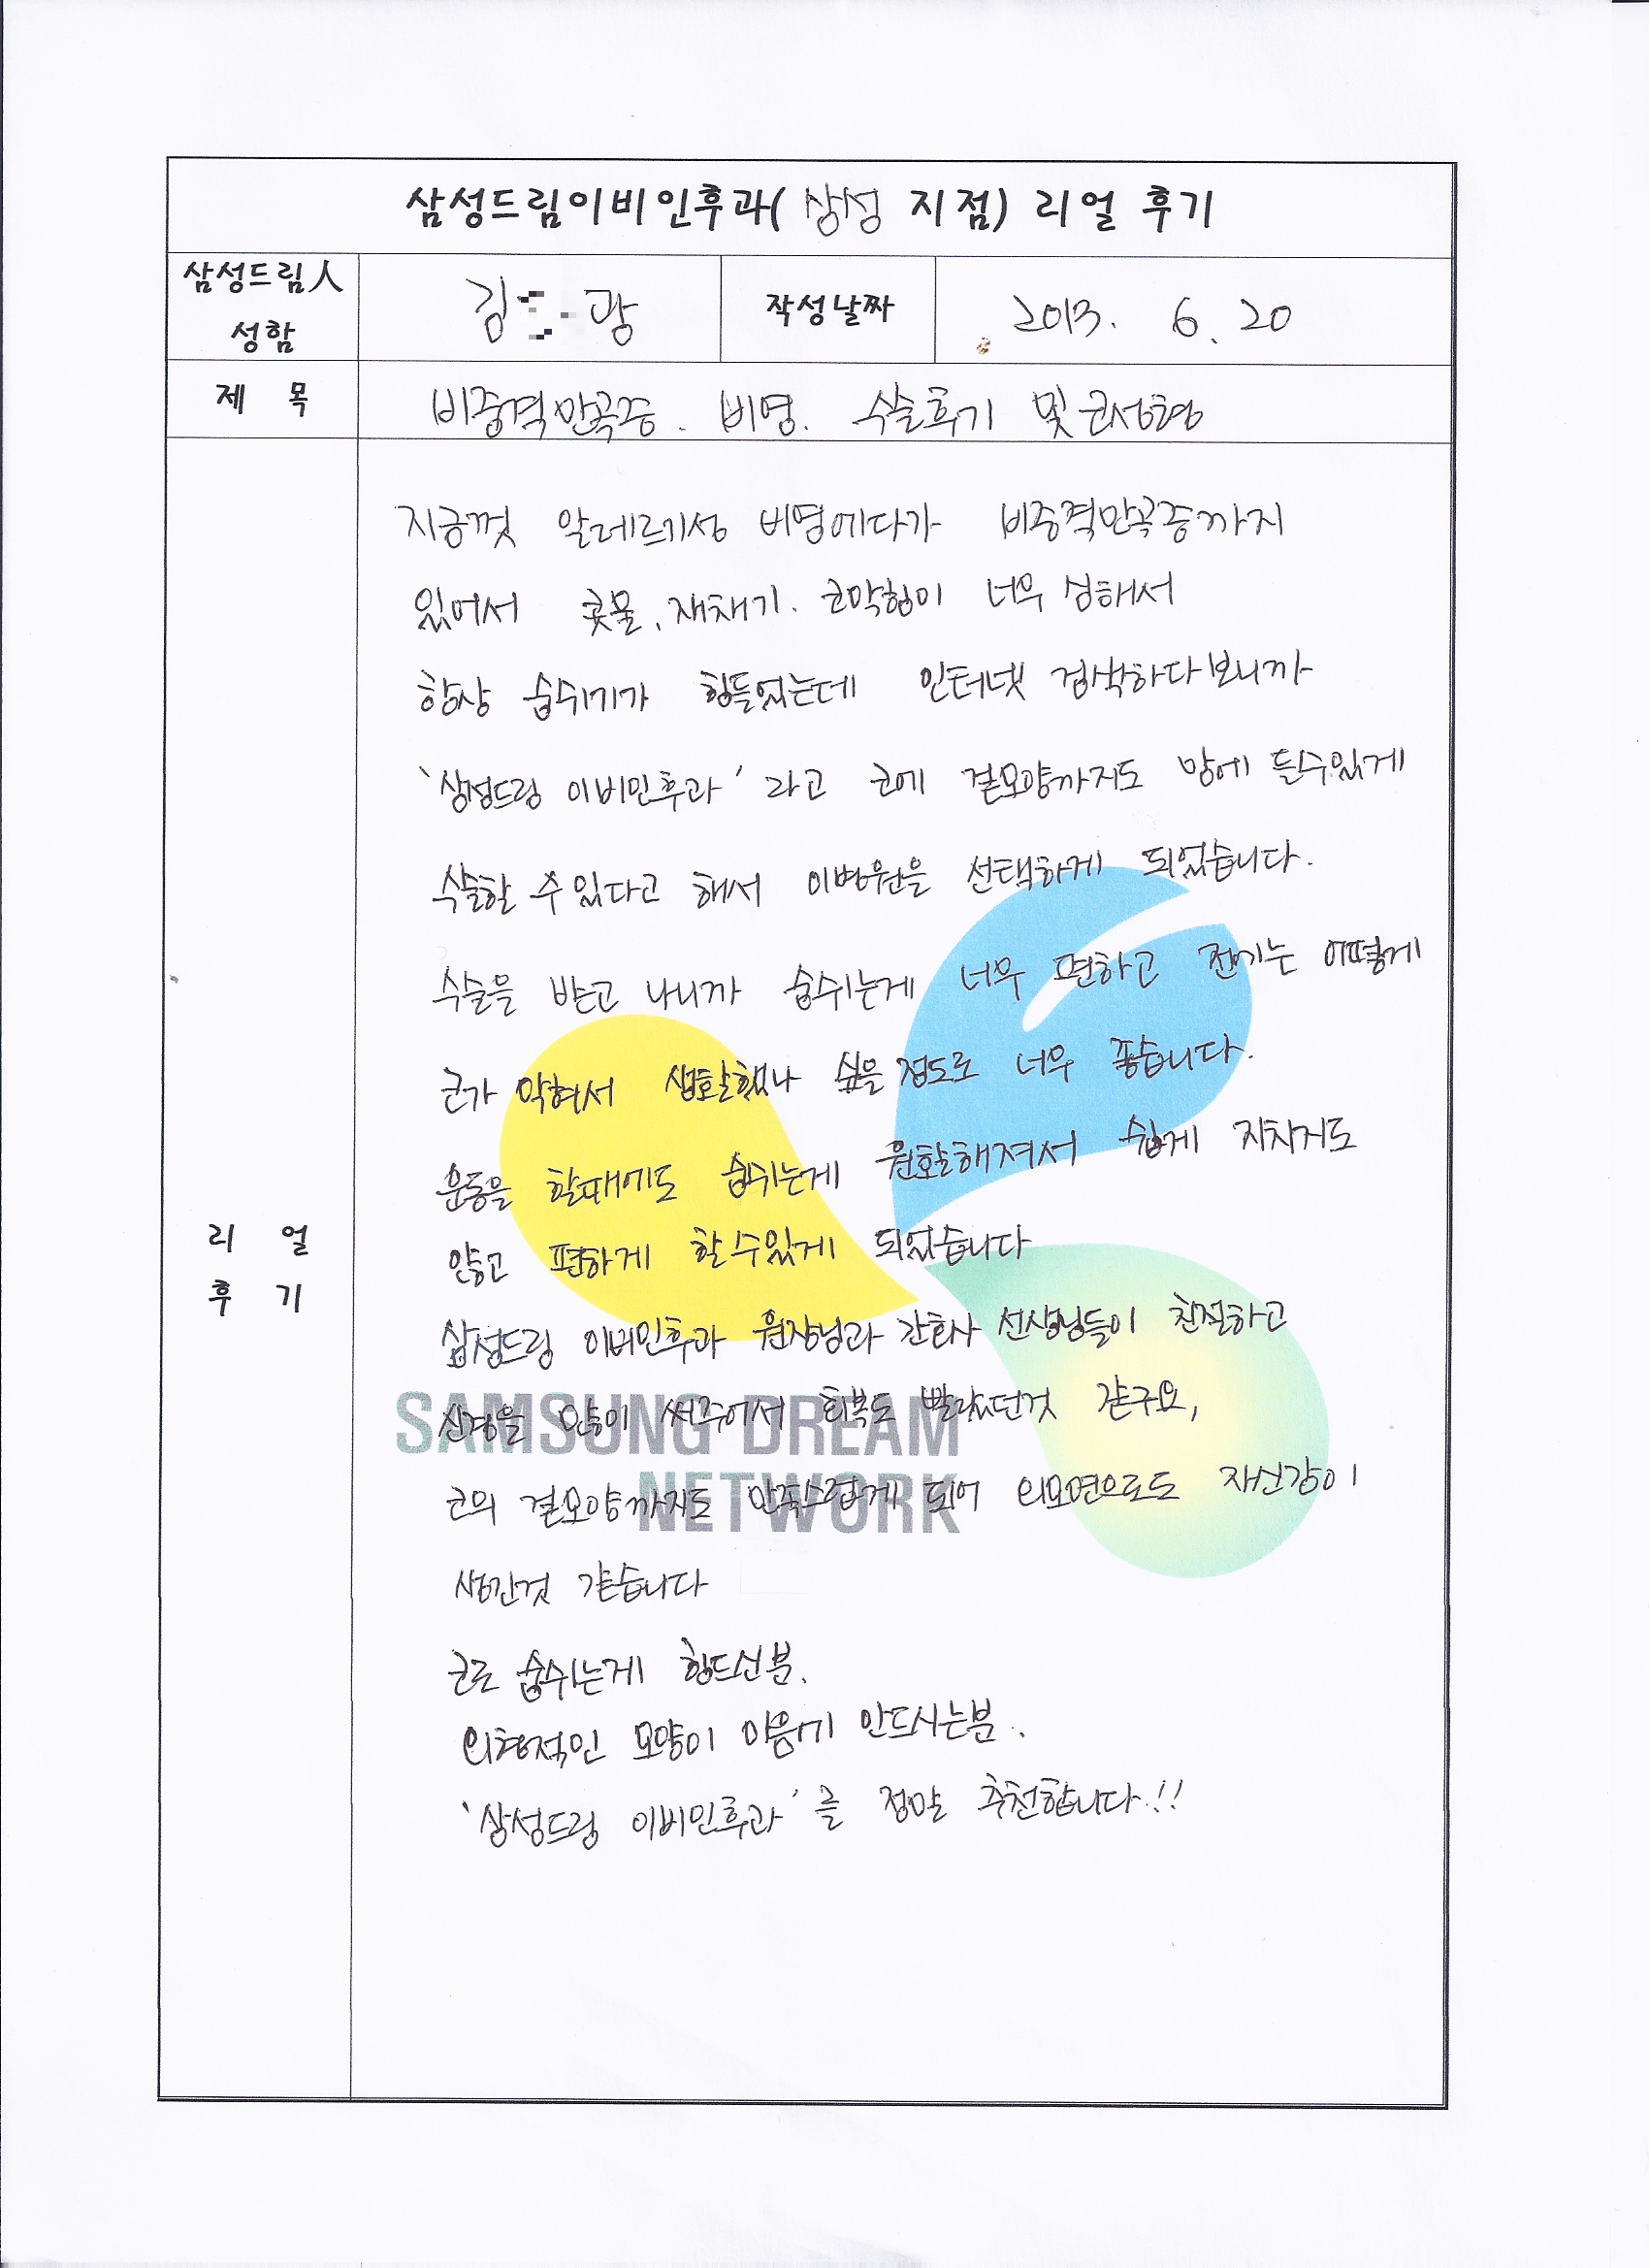 삼성드림이비인후과( 삼성 지점) 리얼 후기
삼성드림人
성함
김 광
작성날짜
2013. 6. 20
제 목
비중격만곡증. 비염. 수술후기 및 코성형
지금껏 알레르기성 비염에다가 비중격만곡증까지
있어서 콧물, 재채기. 코막힘이 너무 심해서
항상 숨쉬기가 힘들었는데 인터넷 검색하다보니까
'삼성드림 이비인후과' 라고 코에 겉모양까지도 맘에 들수있게
수술할 수 있다고 해서 이병원을 선택하게 되었습니다.
수술을 받고 나니까 숨쉬는게 너무 편하고 전에는 어떻게
코가 막혀서 생활했나 싶을 정도로 너무 좋습니다.
운동을 할때에도 숨쉬는게 원활해져서 쉽게 지치지도
않고 편하게 할수있게 되었습니다
리 얼
후 기
삼성드림 이비인후과 원장님과 간호사 선생님들이 친절하고
신경을 많이 써주어서 회복도 빨랐던것 같구요,
SAMSUNG DREAM
코의 겉모양까지도 만족스럽게 되어 외모면으로도 자신감이
NETWORK
생긴것 같습니다
코로 숨쉬는게 힘드신분.
외형적인 모양이 마음에 안드시는분.
'삼성드림 이비인후과'를 정말 추천합니다.!!